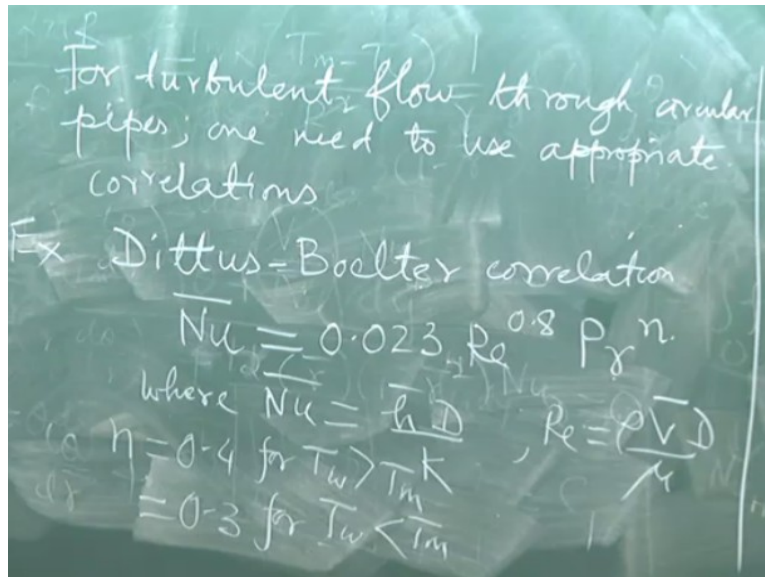 For turbulent flow through circular
pipes, one need to use appropriate
correlations
Ex Dittus-Boelter correlation
N̅u̅ = 0.023 Re^0.8 Pr^n.
where N̅u̅ = h̅D/K , Re = ρV̅D/μ
n = 0.4 for Tw > Tm
= 0.3 for Tw < Tm